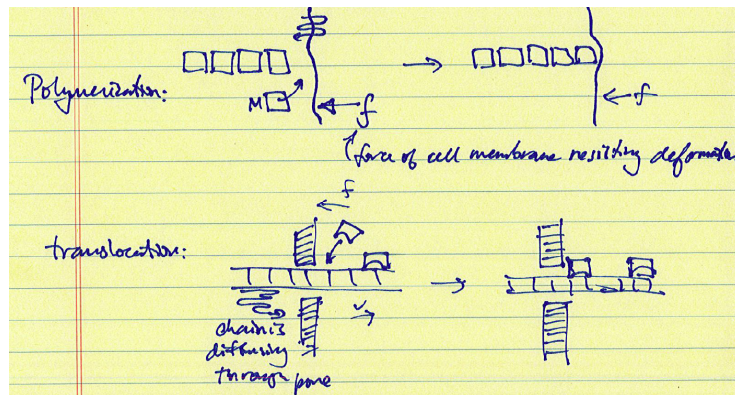 Polymerization:
M
f
f
force of cell membrane resisting deformation
translocation:
f
v
chain is
diffusing
through pore